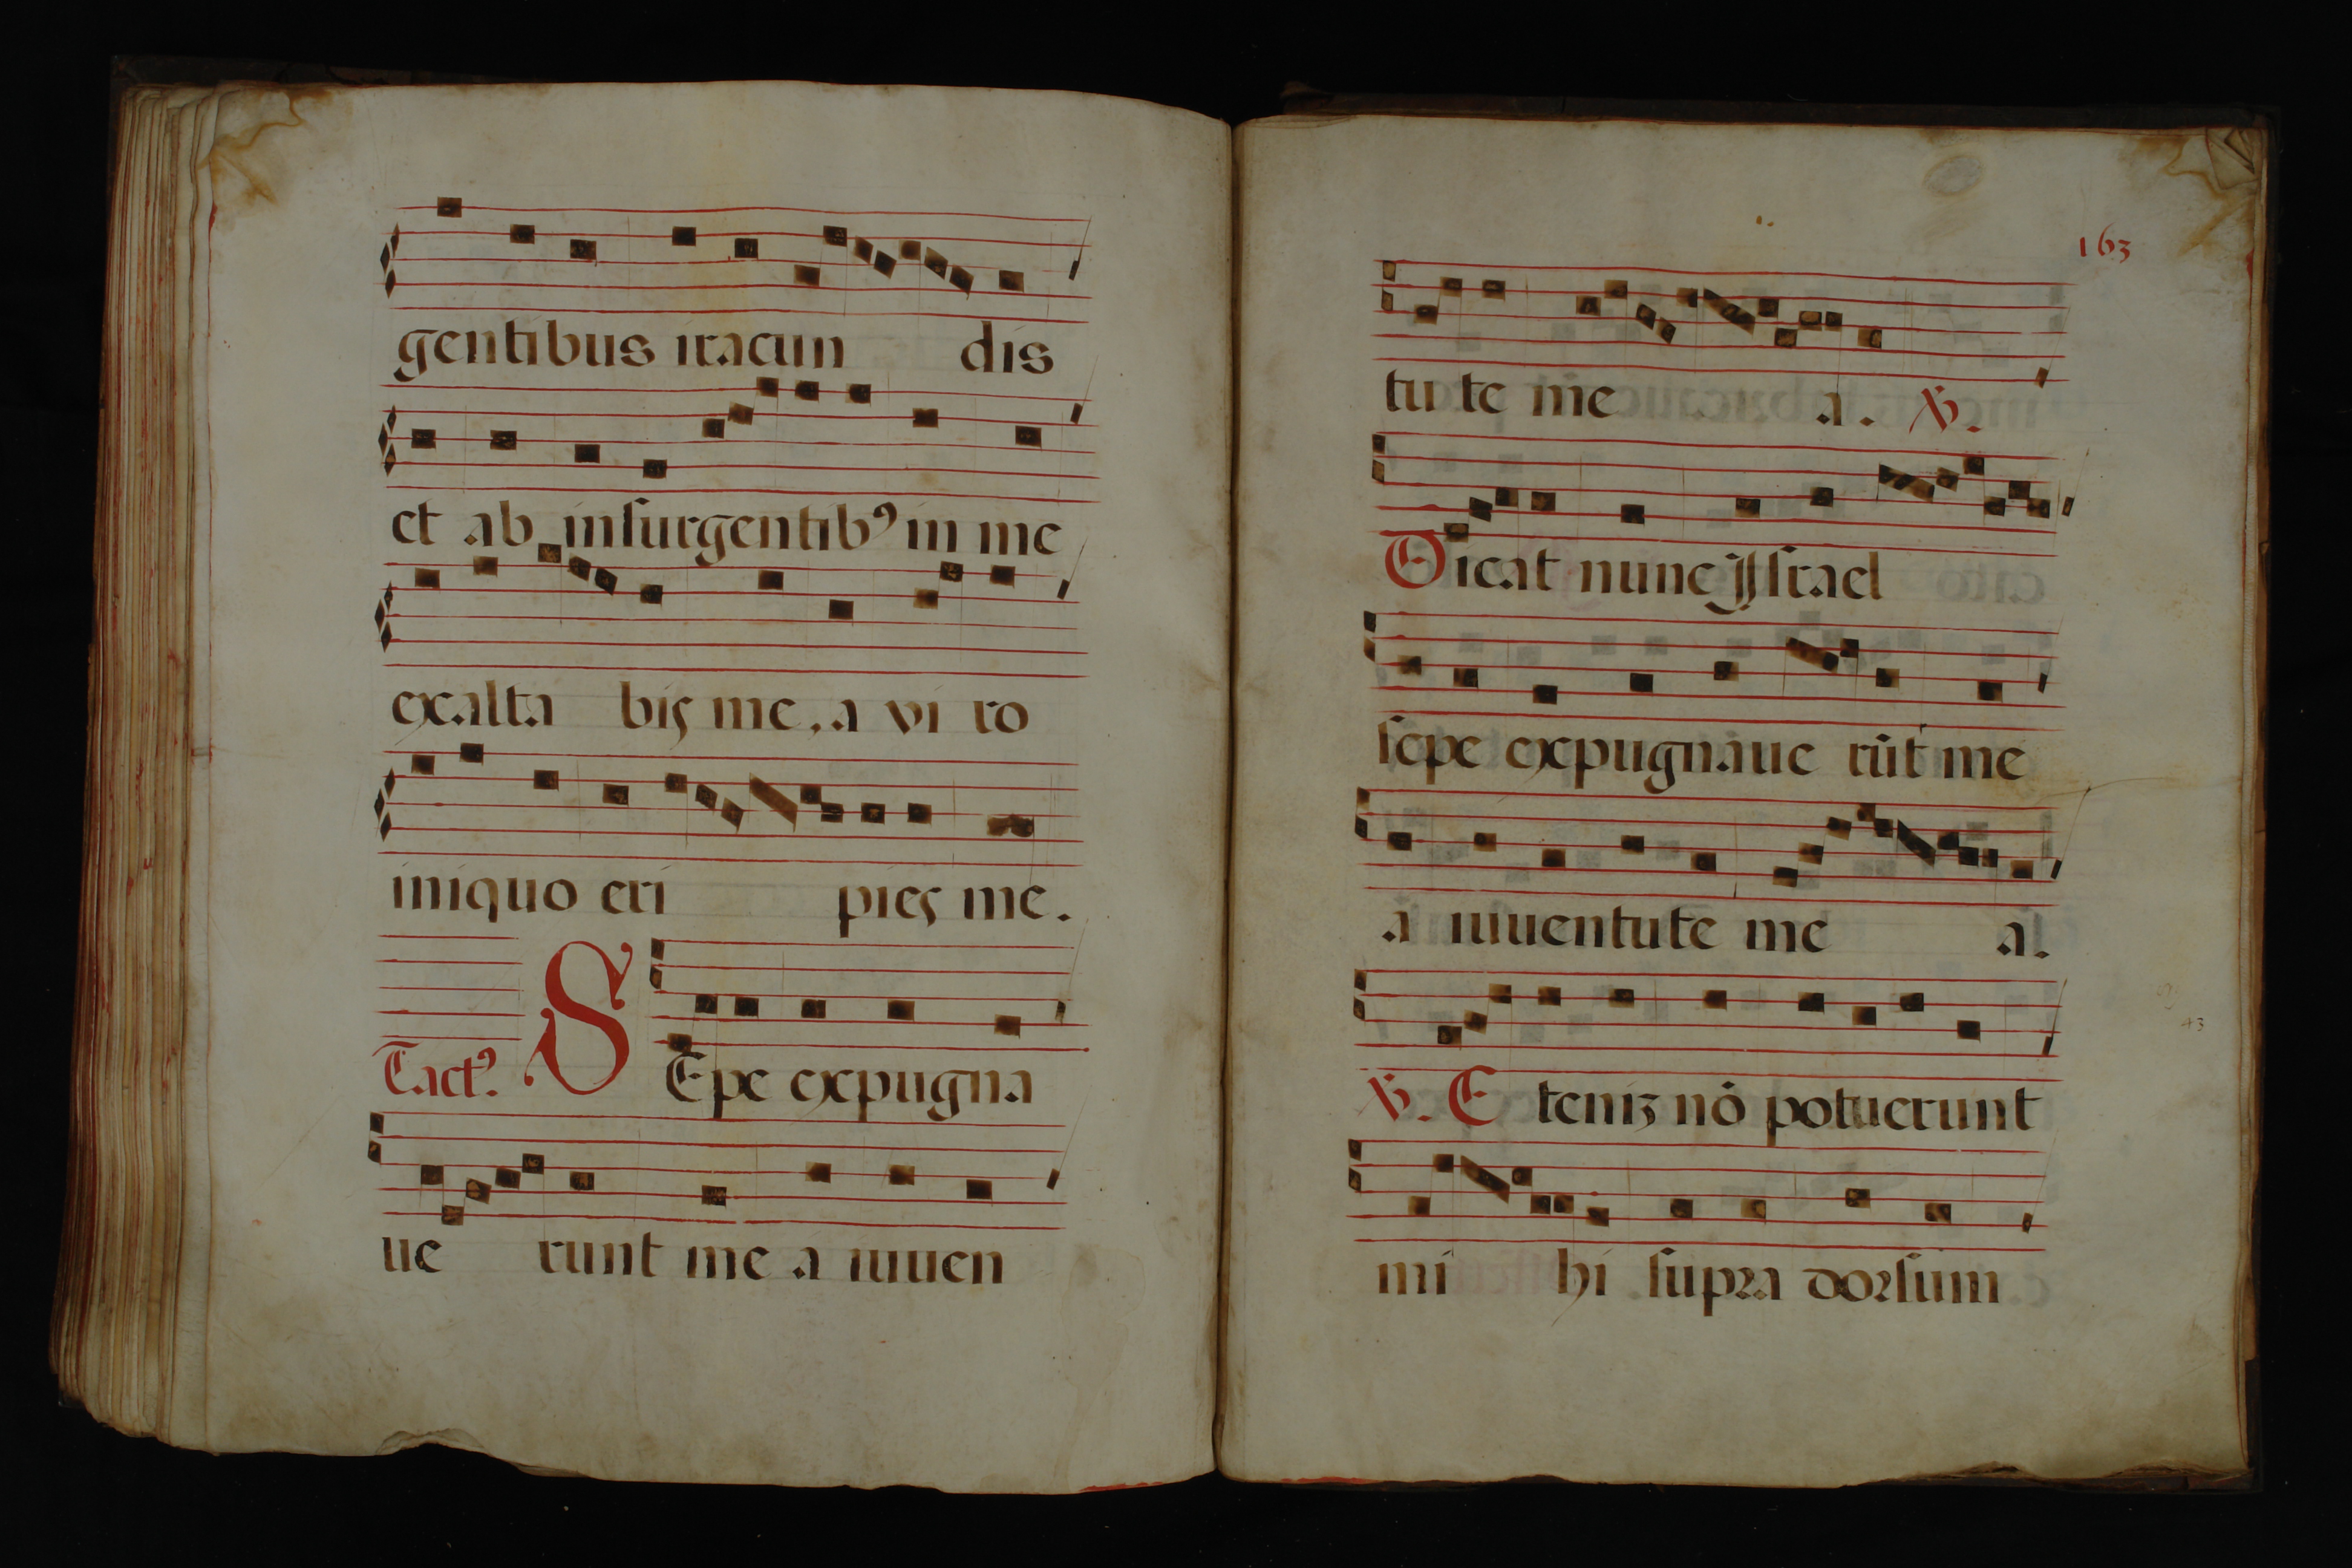 gentibus iracun dis
et ab insurgentibꝰ in me
exalta bis me, a vi ro
iniquo eri pies me.
Tactꝰ. SEpe expugna
ue runt me a iuuen
163
tu te me a. ℣.
Dicat nunc Israel
sepe expugnaue rūt me
a iuuentute me a.
℣. E teniꝫ nō potuerunt
mi hi supra dorsum
43